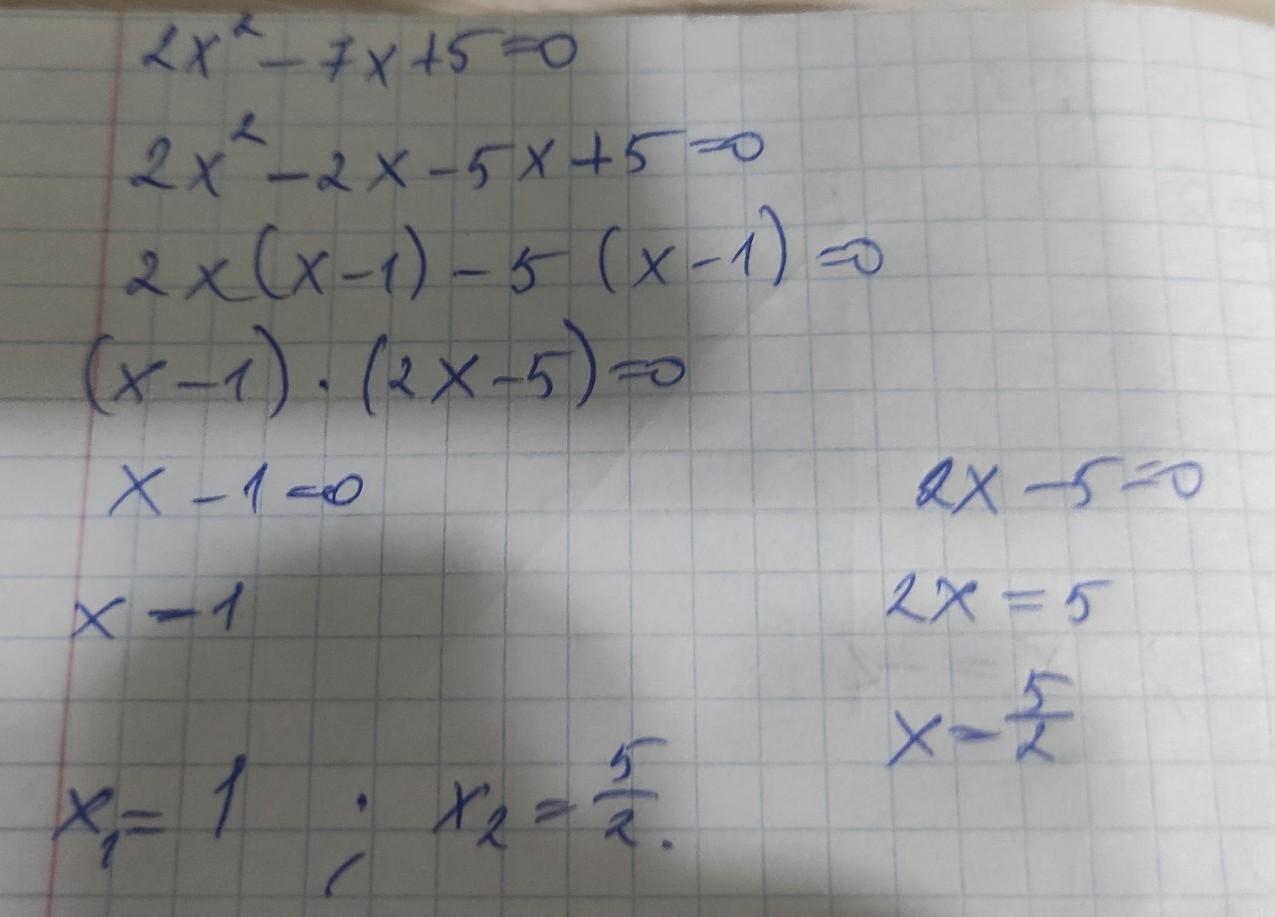 2x² - 7x + 5 = 0
2x² - 2x - 5x + 5 = 0
2x(x - 1) - 5 (x - 1) = 0
(x - 1) · (2x - 5) = 0
x - 1 = 0
2x - 5 = 0
x - 1
2x = 5
x - 5/2
x₁ = 1 ; x₂ = 5/2.